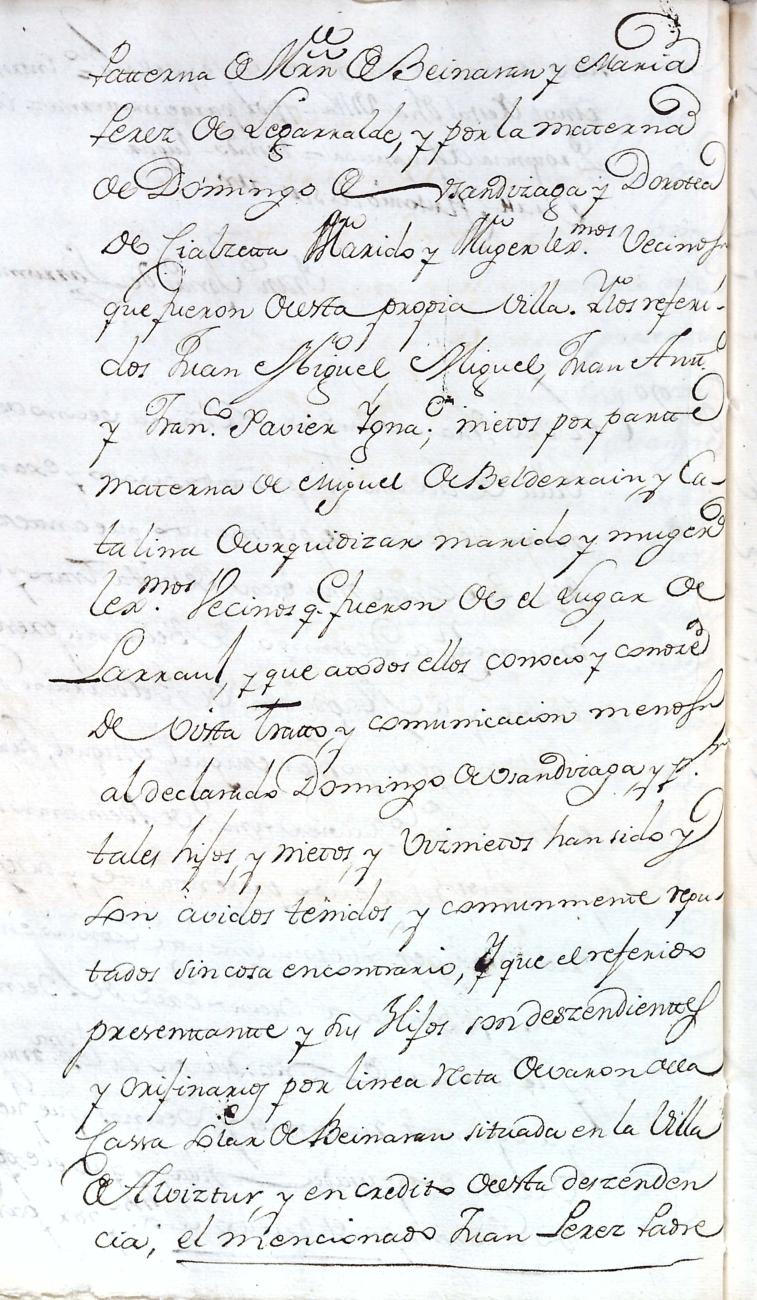 Patterna de Mrñ de Beinaran y Maria
Perez de Legarralde, y por la materna
de Domingo de Vsandizaga y Dorotea
de Cialzetta Marido y Muger lex.mos Vecinos
que fueron de esta propia Villa. Y los referi-
dos Juan Miguel Miguel, Juan Antt.
y Fran.co Xavier Ygna.o, nietos por partte
materna de Miguel de Belderrain y Ca-
talina de Vrquidizar marido y muger
lex.mos Vecinos q.e fueron de el Lugar de
Larraul, y que a todos ellos conocio y conoze
de vista tratto, y comunicacion menos
al declarado Domingo de Vsandizaga, y p.r
tales hijos, y nietos, y Viznietos han sido y
son avidos tenidos, y comunmente repu-
tados sin cosa en contrario, Y que el referido
presenttantte y sus Hijos son deszendienttes
y orijinarios por linea recta de varon de la
Cassa solar de Beinaran situada en la Villa
de Alviztur, y en credito de esta deszenden
cia, el mencionado Juan Perez Padre